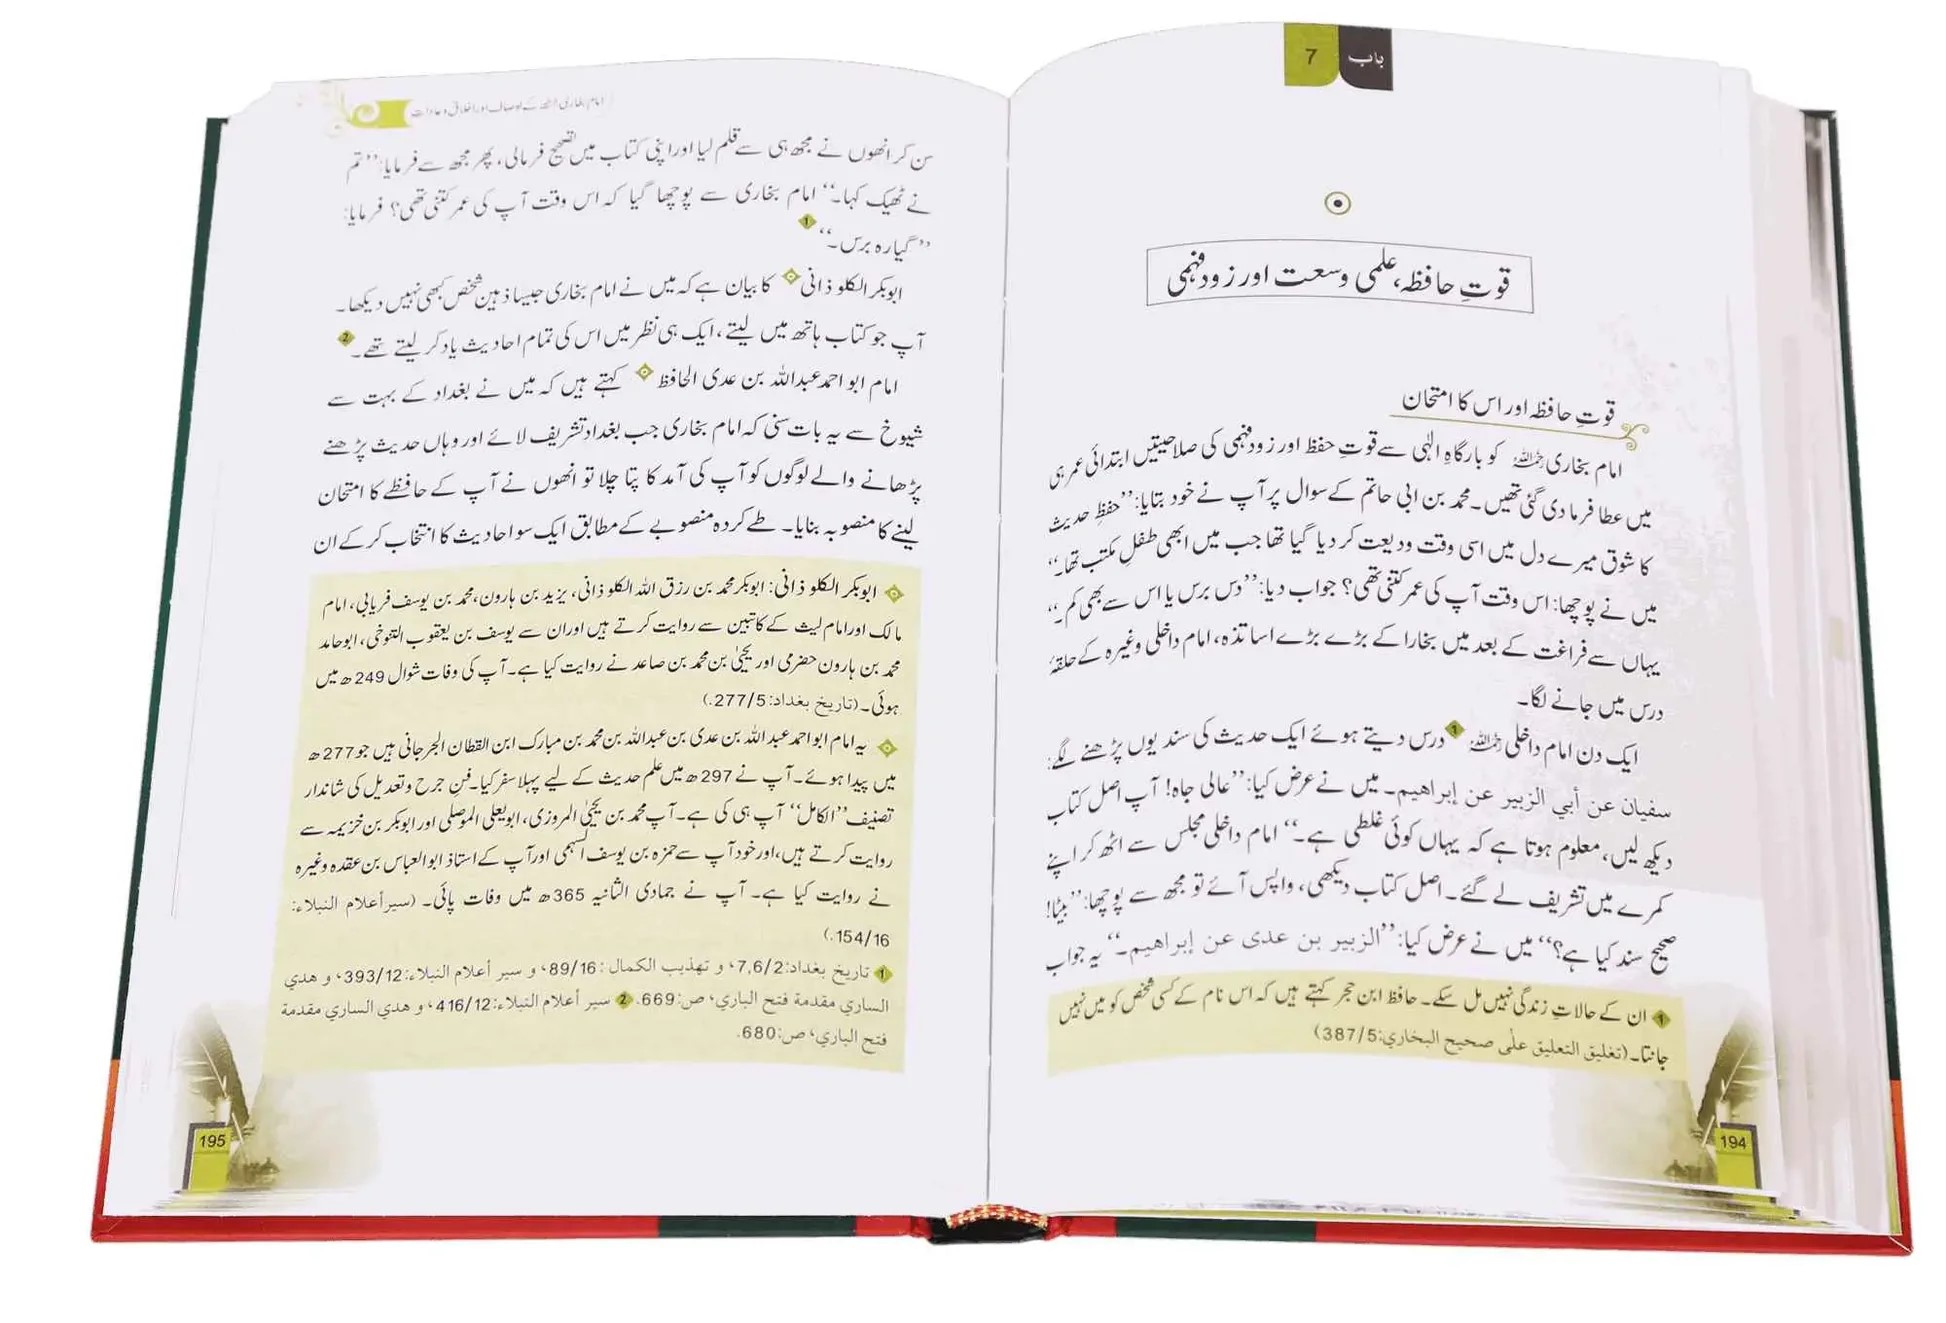 باب 7
قوتِ حافظہ، علمی وسعت اور زود فہمی
قوتِ حافظہ اور اس کا امتحان
امام بخاری رحمہ اللہ کو بارگاہِ الٰہی سے قوتِ حفظ اور زود فہمی کی صلاحیتیں ابتدائی عمر ہی
میں عطا فرما دی گئی تھیں۔ محمد بن ابی حاتم کے سوال پر آپ نے خود بتایا: ’’حفظِ حدیث
کا شوق میرے دل میں اسی وقت ودیعت کر دیا گیا تھا جب میں ابھی طفلِ مکتب تھا۔‘‘
میں نے پوچھا: اس وقت آپ کی عمر کتنی تھی؟ جواب دیا: ’’دس برس یا اس سے بھی کم۔‘‘
یہاں سے فراغت کے بعد میں بخارا کے بڑے بڑے اساتذہ، امام داخلی وغیرہ کے حلقۂ
درس میں جانے لگا۔
ایک دن امام داخلی رحمہ اللہ 1 درس دیتے ہوئے ایک حدیث کی سند یوں پڑھنے لگے:
سفیان عن أبي الزبير عن إبراهيم۔ میں نے عرض کیا: ’’عالی جاہ! آپ اصل کتاب
دیکھ لیں، معلوم ہوتا ہے کہ یہاں کوئی غلطی ہے۔‘‘ امام داخلی مجلس سے اٹھ کر اپنے
کمرے میں تشریف لے گئے۔ اصل کتاب دیکھی، واپس آئے تو مجھ سے پوچھا: ’’بیٹا!
صحیح سند کیا ہے؟‘‘ میں نے عرض کیا: ’’الزبير بن عدی عن إبراهيم۔‘‘ یہ جواب
1 ان کے حالاتِ زندگی نہیں مل سکے۔ حافظ ابن حجر کہتے ہیں کہ اس نام کے کسی شخص کو میں نہیں
جانتا۔ (تغليق التعليق علی صحيح البخاري: 387/5)
194
امام بخاری رحمہ اللہ کے اوصاف اور اخلاق و عادات
سن کر انھوں نے مجھ ہی سے قلم لیا اور اپنی کتاب میں تصحیح فرمالی، پھر مجھ سے فرمایا: ’’تم
نے ٹھیک کہا۔‘‘ امام بخاری سے پوچھا گیا کہ اس وقت آپ کی عمر کتنی تھی؟ فرمایا:
’’گیارہ برس۔‘‘ 1
ابوبکر الکلوذانی کا بیان ہے کہ میں نے امام بخاری جیسا ذہین شخص کبھی نہیں دیکھا۔
آپ جو کتاب ہاتھ میں لیتے، ایک ہی نظر میں اس کی تمام احادیث یاد کر لیتے تھے۔ 2
امام ابو احمد عبداللہ بن عدی الحافظ کہتے ہیں کہ میں نے بغداد کے بہت سے
شیوخ سے یہ بات سنی کہ امام بخاری جب بغداد تشریف لائے اور وہاں حدیث پڑھنے
پڑھانے والے لوگوں کو آپ کی آمد کا پتا چلا تو انھوں نے آپ کے حافظے کا امتحان
لینے کا منصوبہ بنایا۔ طے کردہ منصوبے کے مطابق ایک سو احادیث کا انتخاب کر کے ان
ابوبکر الکلوذانی: ابوبکر محمد بن رزق اللہ الکلوذانی، یزید بن ہارون، محمد بن یوسف فریابی، امام
مالک اور امام لیث کے کاتبین سے روایت کرتے ہیں اور ان سے یوسف بن یعقوب التنوخی، ابوحامد
محمد بن ہارون حضرمی اور یحییٰ بن محمد بن صاعد نے روایت کیا ہے۔ آپ کی وفات شوال 249ھ میں
ہوئی۔ (تاریخ بغداد: 277/5.)
یہ امام ابو احمد عبداللہ بن عدی بن عبداللہ بن محمد بن مبارک ابن القطان الجرجانی ہیں جو 277ھ
میں پیدا ہوئے۔ آپ نے 297ھ میں علم حدیث کے لیے پہلا سفر کیا۔ فنِ جرح و تعدیل کی شاندار
تصنیف ’’الکامل‘‘ آپ ہی کی ہے۔ آپ محمد بن یحییٰ المروزی، ابویعلی الموصلی اور ابوبکر بن خزیمہ سے
روایت کرتے ہیں، اور خود آپ سے حمزہ بن یوسف السہمی اور آپ کے استاذ ابوالعباس بن عقدہ وغیرہ
نے روایت کیا ہے۔ آپ نے جمادی الثانیہ 365ھ میں وفات پائی۔ (سير أعلام النبلاء:
154/16.)
1 تاريخ بغداد: 7,6/2، و تهذيب الكمال: 89/16، و سير أعلام النبلاء: 393/12، و هدي
الساري مقدمة فتح الباري، ص: 669. 2 سير أعلام النبلاء: 416/12، و هدي الساري مقدمة
فتح الباري، ص: 680.
195